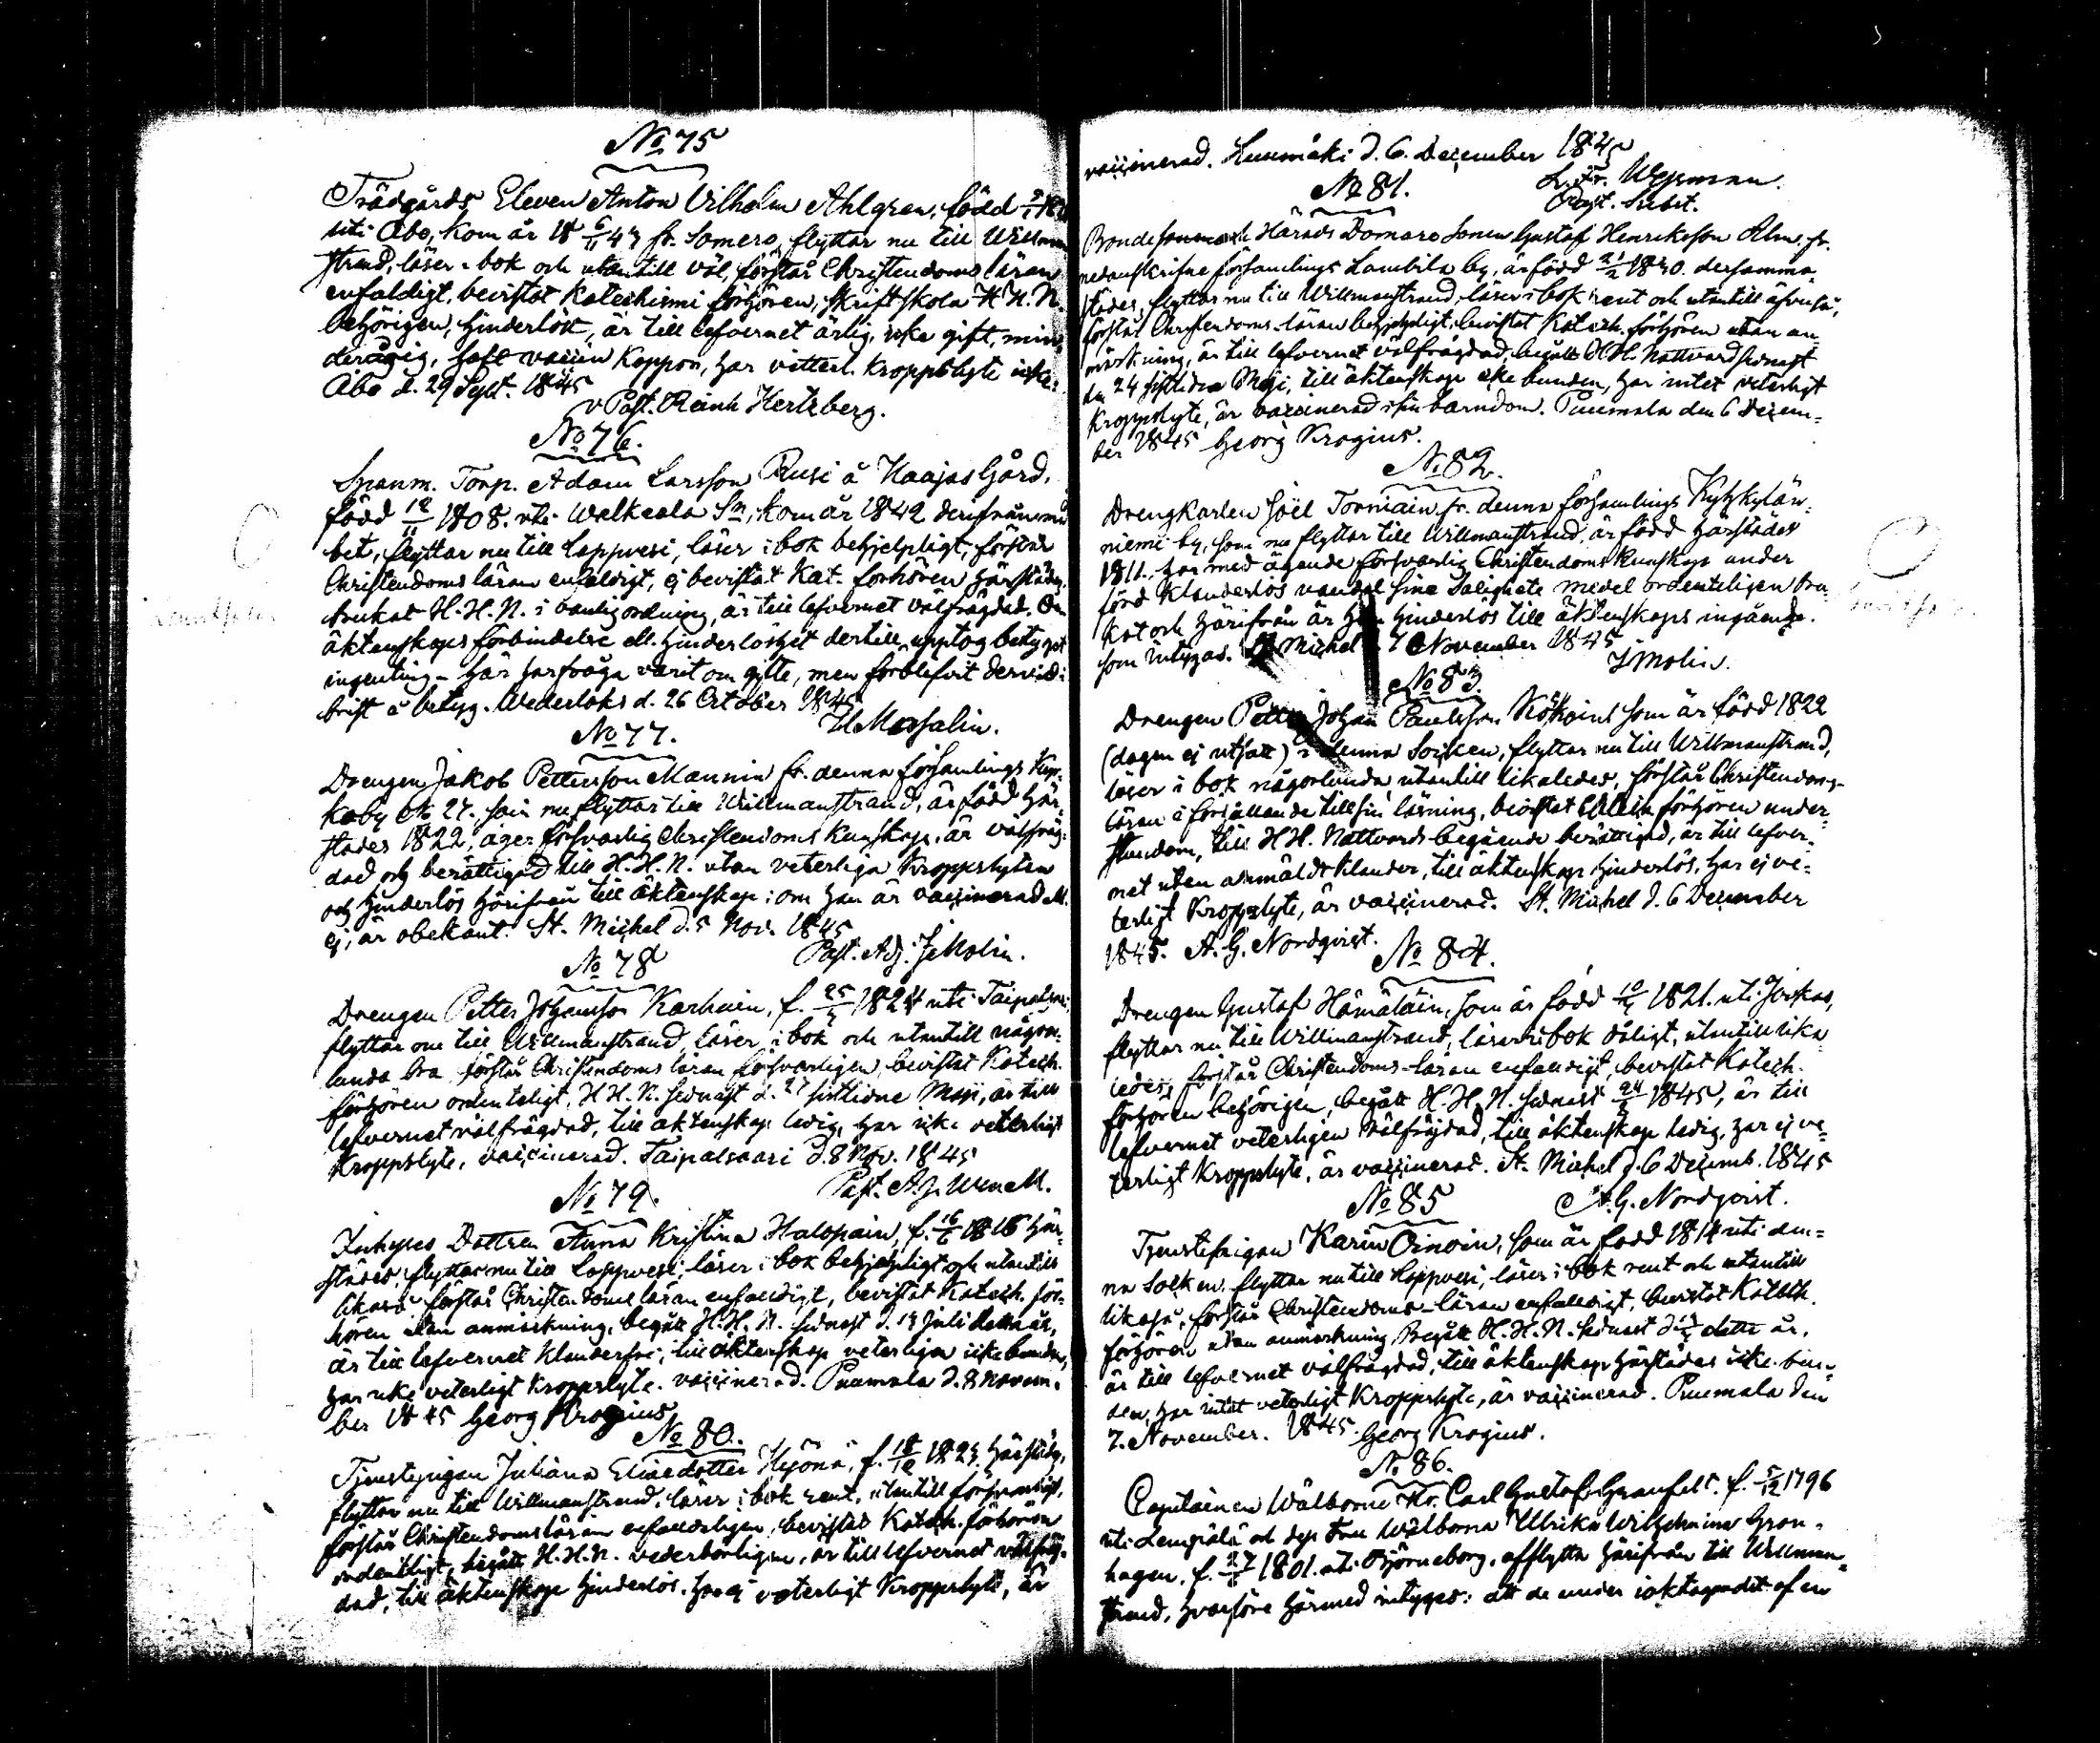 No 75
Trädgårds Eleven Anton Vilhelm Ahlgren, född
uti Åbo, kom år 18 6/11 43 fr. Somero, flyttar nu till Willman
strand, läser i bok och utantill väl, förstår Christendoms läran
enfaldigt, bevistat Katechismi förhören, skriftskola H. H. N.
behörigen, hinderlöst, är till lefvernet ärlig, icke gift, min
derårig, haft vaccin Koppor, har vitterl. Kroppslyte icke.
Åbo d. 29 Sept. 1845
v Past. Reinh Hertzberg.
No 76.
Spanm. Torp. Adam Larsson Rusi å Haajas Gård,
född 12/11 1808. uti Walkeala Sn, kom år 1842 derifrån
bet, flyttar nu till Lappvesi, läser i bok behjelpligt, förstår
Christendoms läran enfaldigt, ej bevistat Kat. förhören härstädes,
brukat H. H. N. i vanlig ordning, är till lefvernet välfrägdad. Om
äktenskaps förbindelse ell. hinderlöshet dertill upptog betyget
ingenting - här har fråga varit om gifte, men förblefvit dervid i
brist å betyg. Wederlaks d. 26 October 1845
H Massalin.
No 77.
Drengen Jakob Pettersson Mannin fr. denna församlings
kaby No 27. som nu flyttar till Willmanstrand, är född här
städes 1822, äger försvarlig Christendoms kunskap, är välfräg-
dad och berättigad till H. H. N. utan veterliga Kroppslyten
och hinderlös härifrån till äktenskap; om han är vaccinerad ell.
ej, är obekant. St. Michel d. 5 Nov. 1845
Past. Adj. J Molin.
No 78
Drengen Petter Johansson Karhuin, f. 25/5 1824 uti Taipalsaari
flyttar nu till Willmanstrand, läser i bok och utantill någor-
lunda bra, förstår Christendoms läran försvarligen, bevistat Katech.
förhören ordenteligt, H. H. N. sednast d. 27 sistlidne Maji, är till
lefvernet välfrägdad, till äktenskap ledig, har icke veterligt
Kroppslyte, vaccinerad. Taipalsaari d. 8 Nov. 1845
Past. Adj.
No 79.
Inhyses Dottren Anna Kristina Halopain, f. 16/6 18 här-
städes, flyttar nu till Lappvesi, läser i bok behjelpligt och utantill
likaså förstår Christendoms läran enfaldigt, bevistat Katech. för-
hören utan anmärkning, begått H. H. N. sednast d. 13 Juli detta år,
är till lefvernet Klanderfri, till äktenskap veterligen icke bunden,
har icke veterligt Kroppslyte. vaccinerad. Puumala d. 8 Novem-
ber 1845 Georg Krogius
No 80.
Tjenstepigan Juliana Eliaedotter Hyöna, f. 18/12 1823 härstädes,
flyttar nu till Willmanstrand, läser i bok rent, utantill försvarligt,
förstår Christendoms läran enfaldeligen, bevistat Katech. förhören
ordentligt, begått H. H. N. vederbörligen, är till lefvernet välfräg-
dad, till äktenskap hinderlös, har ej veterligt Kroppslyte, är
vaccinerad. d. 6. December 1845
Past. Subst.
No 81.
Bondesonen Härads Domare Sonen Gustaf Henriksson fr.
nedanskrifne församlings Lambila by, är född 21/2 18 0. dersamma-
städes, flyttar nu till Willmanstrand, läser i bok rent och utantill äfvenså,
förstår Christendoms läran behjelpligt, bevistat Katech. förhören utan an-
märkning, är till lefvernet välfrägdad, begått H. H. Nattvard sednast
den 24 sistlidne Maji, till äktenskap icke bunden, har intet veterligt
Kroppslyte, är vaccinerad i sin barndom. Puumala den 6 Decem-
ber 1845 Georg Krogius.
No 82.
Drengkarlen Joël Torniain fr. denna församlings
niemi by, som nu flyttar till Willmanstrand, är född härstädes
1811, har med ägande försvarlig Christendoms kunskap under
förd klanderlös vandel sine Salighets medel ordenteligen bru-
kat och härifrån är han hinderlös till äktenskaps ingående.
som intygas. St. Michel d. 7 November 1845
J Molin.
No 83.
Drengen Petter Johan Paulsson som är född 1822
(dagen ej utsatt) i denna Socken, flyttar nu till Willmanstrand,
läser i bok någorlunda utantill likaledes, förstår Christendoms-
läran i förhållande till sin läsning, bevistat förhören under-
stundom, till H. H. Nattvards begående berättigad, är till lefver-
net utan anmäldt klander, till äktenskap hinderlös, har ej ve-
terligt Kroppslyte, är vaccinerad. St. Michel d. 6 December
1845. A. G. Nordqvist.
No 84.
Drengen Gustaf Hämäläin, som är född 10/4 1821. uti Jockas,
flyttar nu till Willmanstrand, läser i bok dåligt, utantill lika
ledes, förstår Christendoms-läran enfaldigt, bevistat Katech.
förhören behörigen, begått H. H. N. sednast 24/8 1845, är till
lefvernet veterligen välfrägdad, till äktenskap ledig, har ej ve-
terligt Kroppslyte, är vaccinerad. St. Michel d. 6 Decemb. 1845
A. G. Nordqvist.
No 85
Tjenstepigan Karin Oinoin, som är född 1814 uti den-
na Socken, flyttar nu till Lappvesi, läser i bok rent och utantill
likaså, förstår Christendoms-läran enfaldigt, bevistat Katech.
förhören utan anmärkning Begått H. H. N. sednast detta år,
är till lefvernet välfrägdad, till äktenskap härstädes icke bun-
den, har intet veterligt Kroppslyte, är vaccinerad. Puumala den
7. November. 1845. Georg Krogius.
No 86.
Capitainen Wälborne Hr. Carl Gustaf Granfelt. f. 5/12 1796
uti Lempälä och dess Fru Wälborna Ulrika Wilhelmina Gron-
hagen, f. 27/ 1801. uti Björneborg, afflytta härifrån till Willman-
strand, hvarföre härmed intygas: att de under iakttagandet af en